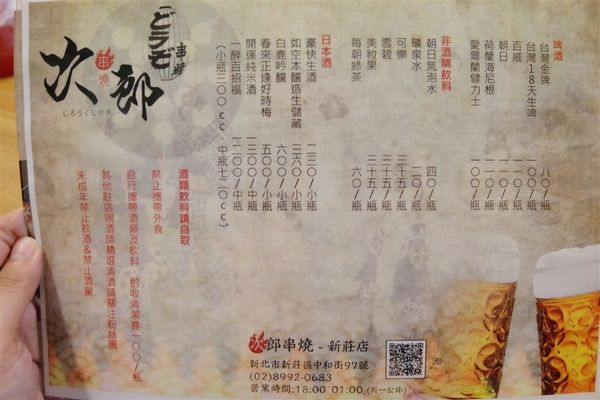 啤酒
台灣金牌 八〇/瓶
台灣18天生啤 一〇〇/瓶
百威 一〇〇/瓶
朝日 一一〇/瓶
荷蘭海尼根 一一〇/瓶
愛爾蘭健力士 一〇〇/瓶
非酒精飲料
朝日氣泡水 四〇/瓶
礦泉水 二〇/瓶
可樂 三十五/瓶
雪碧 三十五/瓶
美粒果 三十五/瓶
每朝綠茶 六〇/瓶
日本酒
豪快生酒 二三〇/小瓶
如空本釀造生儲藏 三六〇/小瓶
白鹿吟釀 六〇〇/小瓶
春來正逢好時梅 五〇〇/小瓶
開運純米酒 一三〇〇/中瓶
一醉百招福 一二〇〇/中瓶
(小瓶三〇〇cc、中瓶七二〇cc)
どうぞ
串燒
次郎
串燒
じろうくしやき
酒類飲料請自取
禁止攜帶外食
自行攜帶酒類及飲料、酌收清潔費一〇〇/瓶
其他駐店唎酒師精選清酒請關注粉絲團
未成年禁止飲酒&禁止酒駕
次郎串燒-新莊店
新北市新莊區中和街97號
(02)8992-0683
營業時間:18:00 01:00 (周一公休)